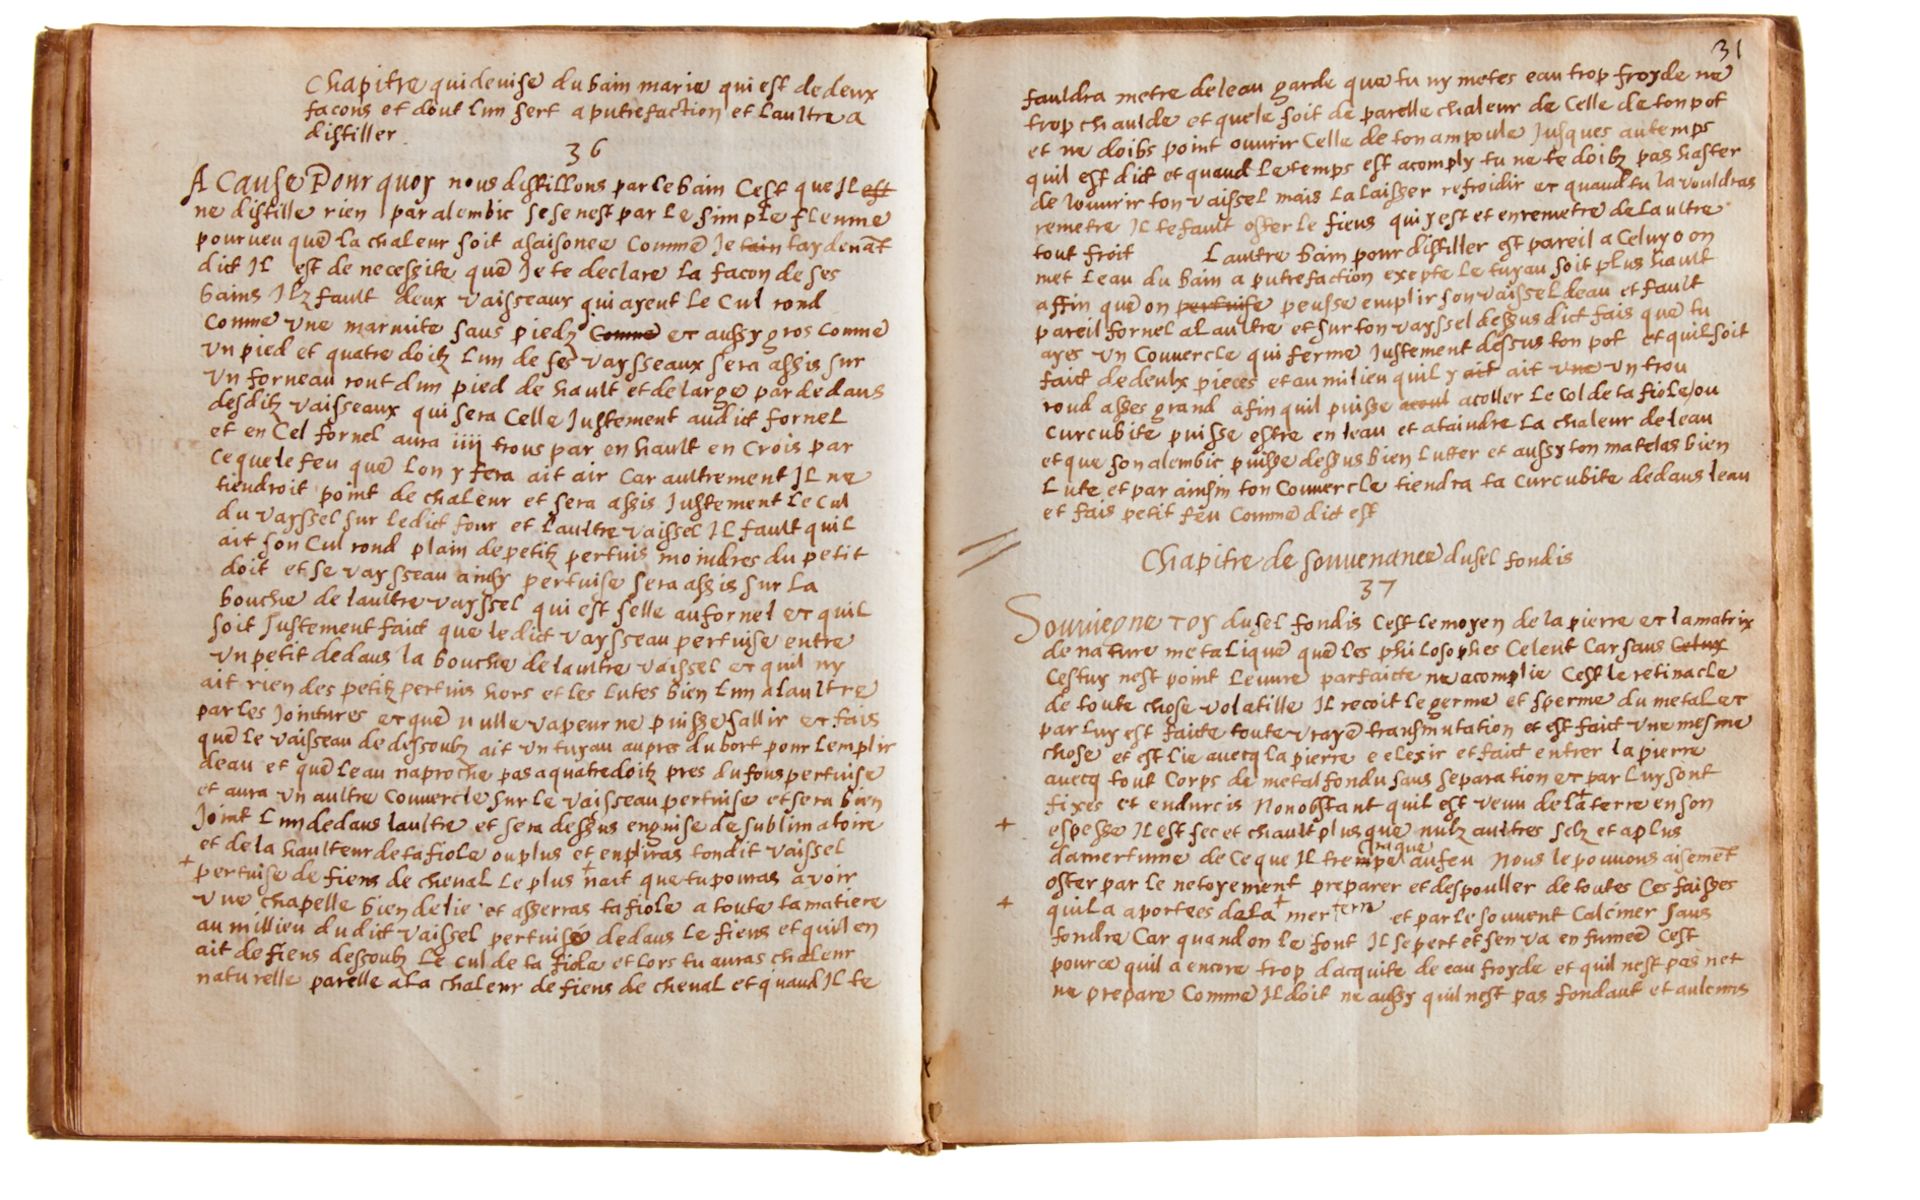 Chapitre qui devise du bain marie qui est de deux
facons et dont lun sert a putrefaction et Laultre a
distiller
36
A Cause Pour quoy nous distillons par le bain Cest que IL est
ne distille rien par alembic se se nest par Le simple fleume
pourveu que La chaleur soit asaisonee Comme Je tain tay denāt
dict IL est de necessite que Je te declare La facon de ses
bains ILz fault deux vaisseaux qui ayent Le Cul rond
Comme une marmite sans piedz Comme et aussy gros Comme
un pied et quatre doitz Lun de ses vaysseaux sera assis sur
un forneau ront dun pied de hault et de large par dedans
desditz vaisseaux qui sera Celle Justement audict fornel
et en Cel fornel aura iiij trous par en hault en Crois par
Ce que le feu que Lon y fera ait air Car aultrement IL ne
tiendroit point de chaleur et sera assis Justement Le Cul
du vayssel sur ledict four et Laultre vaissel IL fault quil
ait son Cul rond plain de petitz pertuis moindres du petit
doit et se vaysseau ainsy pertuise sera assis sur La
bouche de laultre vayssel qui est selle au fornel et quil
soit Justement faict que ledict vaysseau pertuise entre
un petit dedans la bouche de laultre vaissel et quil ny
ait rien des petitz pertuis hors et les Lutes bien Lun a laultre
par les Jointures et que nulle vapeur ne puisse sallir et fais
que Le vaisseau de dessoubz ait un tuyau aupres du bort pour Lemplir
deau et que Leau naproche pas a quatre doitz pres du fons pertuise
et aura un aultre Couvercle sur Le vaisseau pertuise et sera bien
Joint Lun dedans laultre et sera dessus en guise de sublimatoire
et de la haulteur de ta fiole ou plus et enpliras tondit vaissel
+ pertuise de fiens de cheval Le plus + nait que tu pouras avoir
une chapelle bien delie et asserras ta fiole a toute ta matiere
au millieu dudict vaissel pertuise dedans Le fiens et quil en
ait de fiens dessoubz Le cul de ta fiole et Lors tu auras chaleur
naturelle parelle a La chaleur de fiens de cheval et quand IL te
31
fauldra metre de leau garde que tu ny metes eau trop froyde ne
trop chaulde et quele soit de parelle chaleur de Celle de ton pot
et ne doibs point ouvrir Celle de ton ampoule Jusques au temps
quil est dict et quand Le temps est acomply tu ne te doibz pas haster
de louvrir ton vaissel mais La laisser refroidir et quand tu la vouldras
remetre IL te fault oster le fiens qui y est et en remetre de Laultre
tout froit Laultre bain pour distiller est pareil a Celuy o on
met Leau du bain a putrefaction exepte Le tuyau soit plus hault
affin que on pertuise peusse emplir son vaissel deau et fault
pareil fornel a Laultre et sur ton vayssel dessus dict fais que tu
ayes un Couvercle qui ferme Justement dessus ton pot et quil soit
faict de deulx pieces et au milieu quil y ait ait une un trou
rond asses grand afin quil puisse acoul acoller Le Col de ta fiole / ou
curcubite puisse estre en leau et ataindre La chaleur de leau
et que son alembic puisse dessus bien Lutter et aussy ton matelas bien
Lute et par ainsin ton Couvercle tiendra ta Curcubite dedans leau
et fais petit feu Comme dict est
Chapitre de souvenance du sel fondis
37
Souviegne Toy du sel fondis Cest Le moyen de la pierre et la matrix
de nature metalique que les philosophes Celent Car sans Celux
Cestuy nest point Leuvre parfaicte ne acomplie Cest le retinacle
de toute chose volatille IL recoit le germe et sperme du metal et
par Luy est faicte toute vraye transmutation et est faict une mesme
chose et est lie avecq la pierre e elexir et faict entrer la pierre
avecq tout Corps de metal fondu sans separation et par Luy sont
fixes et endurcis Nonobstant quil est venu de la + terre en son
+ espesse IL est sec et chault plus que nulz aultres selz et a plus
damertume de Ce que IL trempe au feu Nous le pouvons aisemēt
oster par le netoyement preparer et despouller de toutes Ces faisses
+ quil a aportees de la + mer terre et par le souvent Calciner sans
fondre Car quand on le font IL se pert et sen va en fumee Cest
pource quil a encore trop dacquite de eau froyde et quil nest pas net
ne prepare Comme IL doit ne aussy quil nest pas fondant et aulcuns